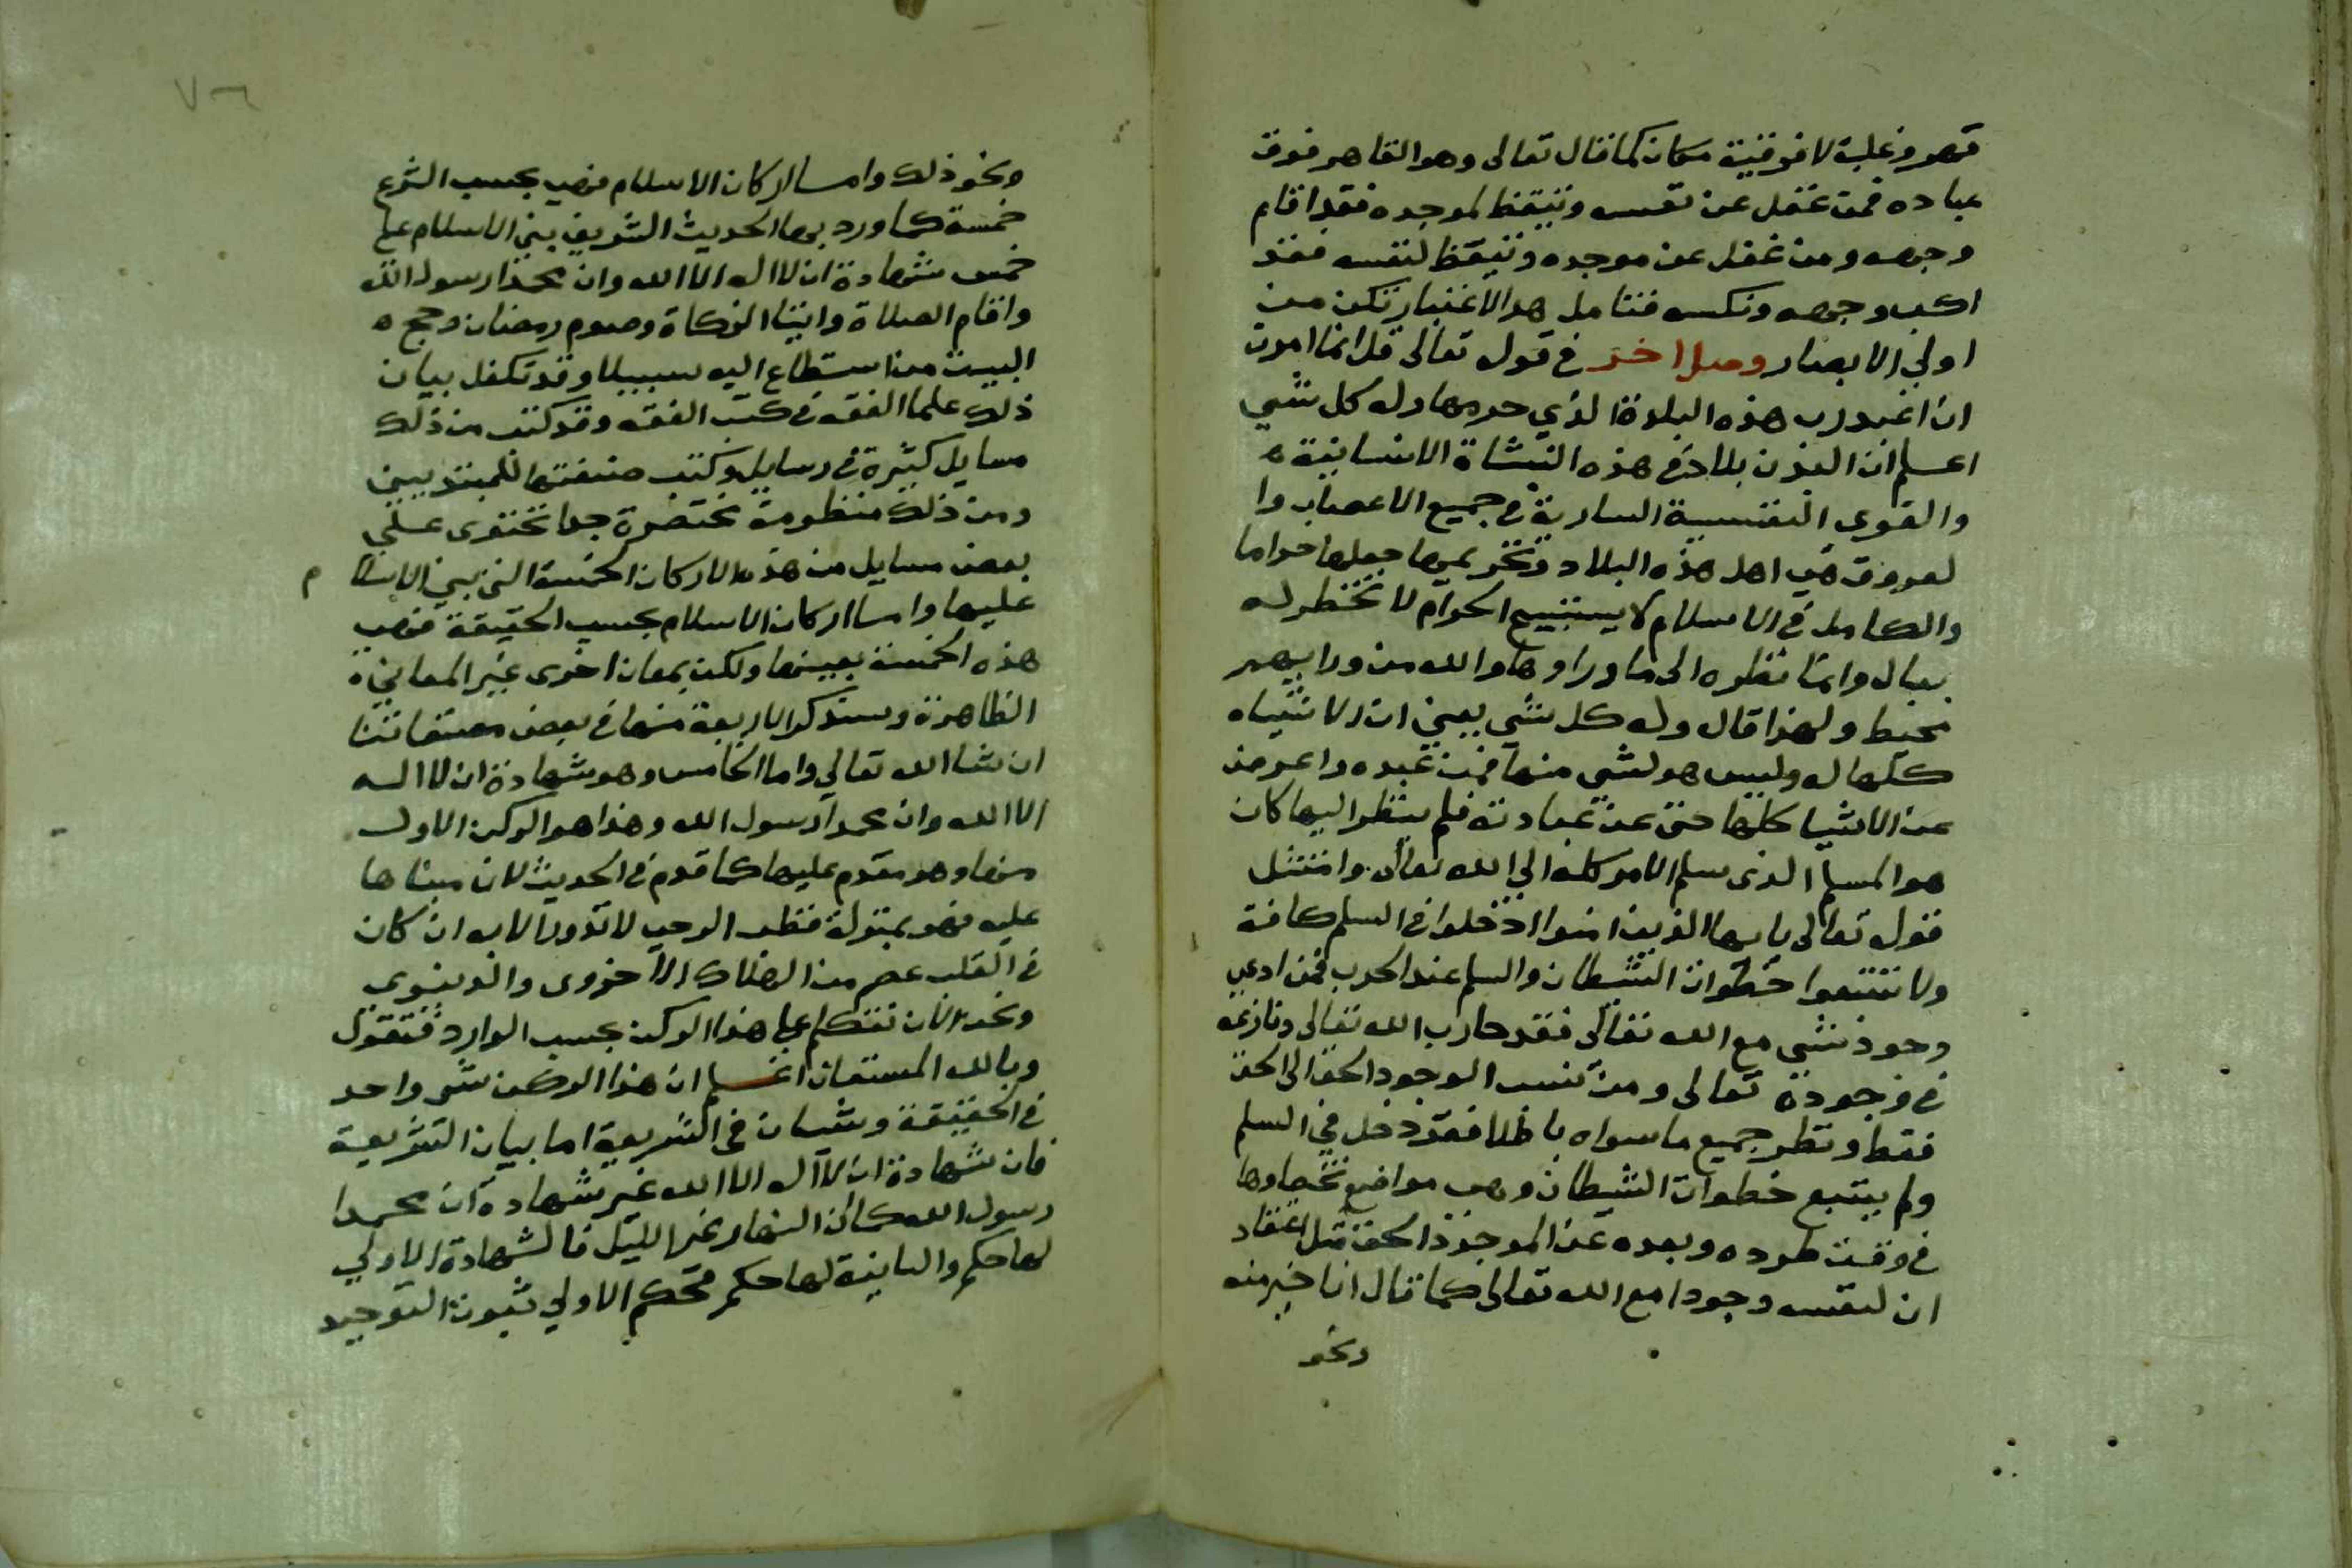 قهر وغلبة لا فوقية مكان كما قال تعالى وهو القاهر فوق
عباده فمن غفل عن نفسه وتيقظ لموجده فقد اقام
وجهه ومن غفل عن موجده وتيقظ لنفسه فقد
اكب وجهه ونكسه فتامل هذا الاعتبار تكن من
اولي الابصار وصل اخر في قوله تعالى قل انما امرت
ان اعبد رب هذه البلدة الذي حرمها وله كل شي
اعلم ان البدن بلاد في هذه النشاة الانسانية
والقوى النفسية السارية في جميع الاعصاب وا
لعروق هي اهل هذه البلاد وتحريمها جعلها حراما
والكامل في الاسلام لا يستبيح الحرام لا تخطر له
ببال وانما نظره الى ما وراوها والله من ورايهم
محيط ولهذا قال وله كل شي يعني ان الاشياء
كلها له وليس هو لشي منها فمن عبده واعرض
عن الاشيا كلها حتى عن عبادته فلم ينظر اليها كان
هو المسلم الذى سلم الامر كله الي الله تعالى وامتثل
قوله تعالى يايها الذين امنوا ادخلوا في السلم كافة
ولا تتبعوا خطوات الشيطان والسلم عند الحرب فمن ادعي
وجود شي مع الله تعالى فقد حارب الله تعالى ونازعه
في وجوده تعالى ومن نسب الوجود الحق الى الحق
فقط ونظر جميع ما سواه باطلا فقد دخل في السلم
ولم يتبع خطوات الشيطان وهي مواضع تخطاوها
في وقت طرده وبعده عن الموجود الحق مثل اعتقاد
ان لنفسه وجودا مع الله تعالى كما قال انا خير منه
ونحو
٧٦
ونحو ذلك واما اركان الاسلام فهي بحسب الشرع
خمسة كما ورد بها الحديث الشريف بني الاسلام على
خمس شهادة ان لا اله الا الله وان محمدا رسول الله
واقام الصلاة وايتا الزكاة وصوم رمضان وحج
البيت من استطاع اليه سبيلا وقد تكفل بيان
ذلك علما الفقه في كتب الفقه وقد كتبت من ذلك
مسايل كثيرة في رسايل وكتب صنفتها للمبتديين
ومن ذلك منظومة مختصرة جدا تحتوى على
بعض مسايل من هذه الاركان الخمسة التي بني الاسلام
عليها واما اركان الاسلام بحسب الحقيقة فهي
هذه الخمسة بعينها ولكن بمعان اخرى غير المعاني
الظاهرة وسنذكر الاربعة منها في بعض مصنفاتنا
ان شا الله تعالي واما الخامس وهو شهادة ان لا اله
الا الله وان محمدا رسول الله وهذا هو الركن الاول
منها وهو مقدم عليها كما قدم في الحديث لان مبناها
عليه فهو بمنزلة قطب الرحي لا تدور الا به ان كان
في القلب عصم من الهلاك الاخروى والدنيوي
ونحن الان نتكلم على هذا الركن بحسب الوارد فنقول
وبالله المستعان اعلم ان هذا الركن شي واحد
في الحقيقة وشيان في الشريعة اما بيان الشريعة
فان شهادة ان لا اله الا الله غير شهادة ان محمدا
رسول الله كما ان النهار غير الليل فالشهادة الاولي
لها حكم والثانية لها حكم فحكم الاولي ثبوت التوحيد